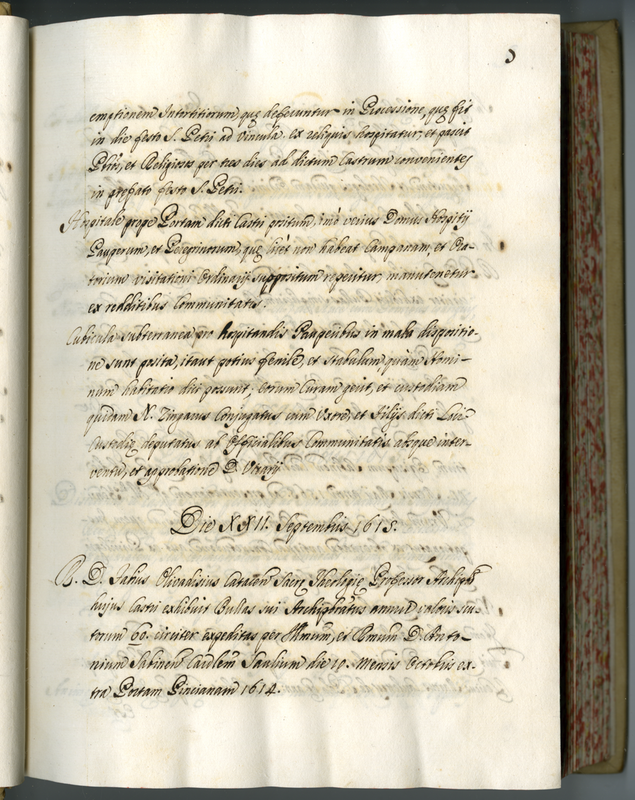 emptionem Intortitiorum, quę deferuntur in Processione, quę fit
in die festo S. Petri ad Vincula. ex reliquis hospitatur, et pascit
Pbros, et Religiosos per tres dies ad dictum Castrum convenientes
in prefato festo S. Petri.
Hospitale prope Portam dicti Castri positum, imo verius Domus Hospitij
Pauperum, et Peregrinorum, quę licet non habeat Campanam, et Ora-
torium visitationi Ordinarij suppositum reperitur, manutenetur
ex redditibus Communitatis.
Cubicula subterranea pro hospitandis Pauperibus in mala dispositio-
ne sunt posita, itaut potius fenile, et stabulum, quàm Homi-
num habitatio dici possunt, eorum curam gerit, et custodiam
quidam N. Zingarus Conjugatus cum Uxore, et filijs dicti loci
Custodię deputatus ab Officialibus Communitatis absque inter-
ventu, et approbatione D. Vicarij
Die XXII. Septembris 1615.
R. D. Julius Catanen Sacrę Theologię Professor Archipbr
hujus Castri exhibuit Bullas sui Archipbratus annui valoris scu-
torum 60. circiter expeditas per Illmum, et Rmum D. Anto-
nium Sabinen Cardlem Saulium die 10. Mensis Octobris ex-
tra Portam Pincianam 1614.